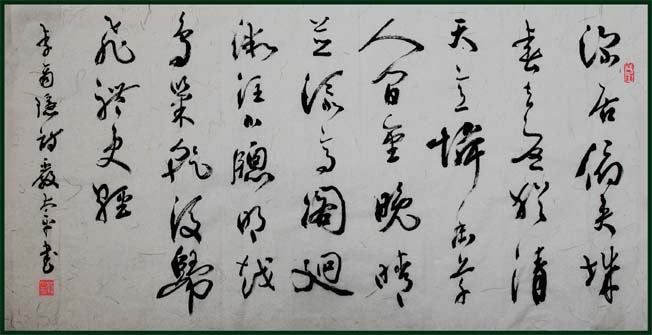 深居俯夾城
春去夏猶清
天意憐幽草
人间重晚晴
並添高阁迥
微注小牕明越
鳥巢乾後歸
飛體更輕
李商隱詩 太平書